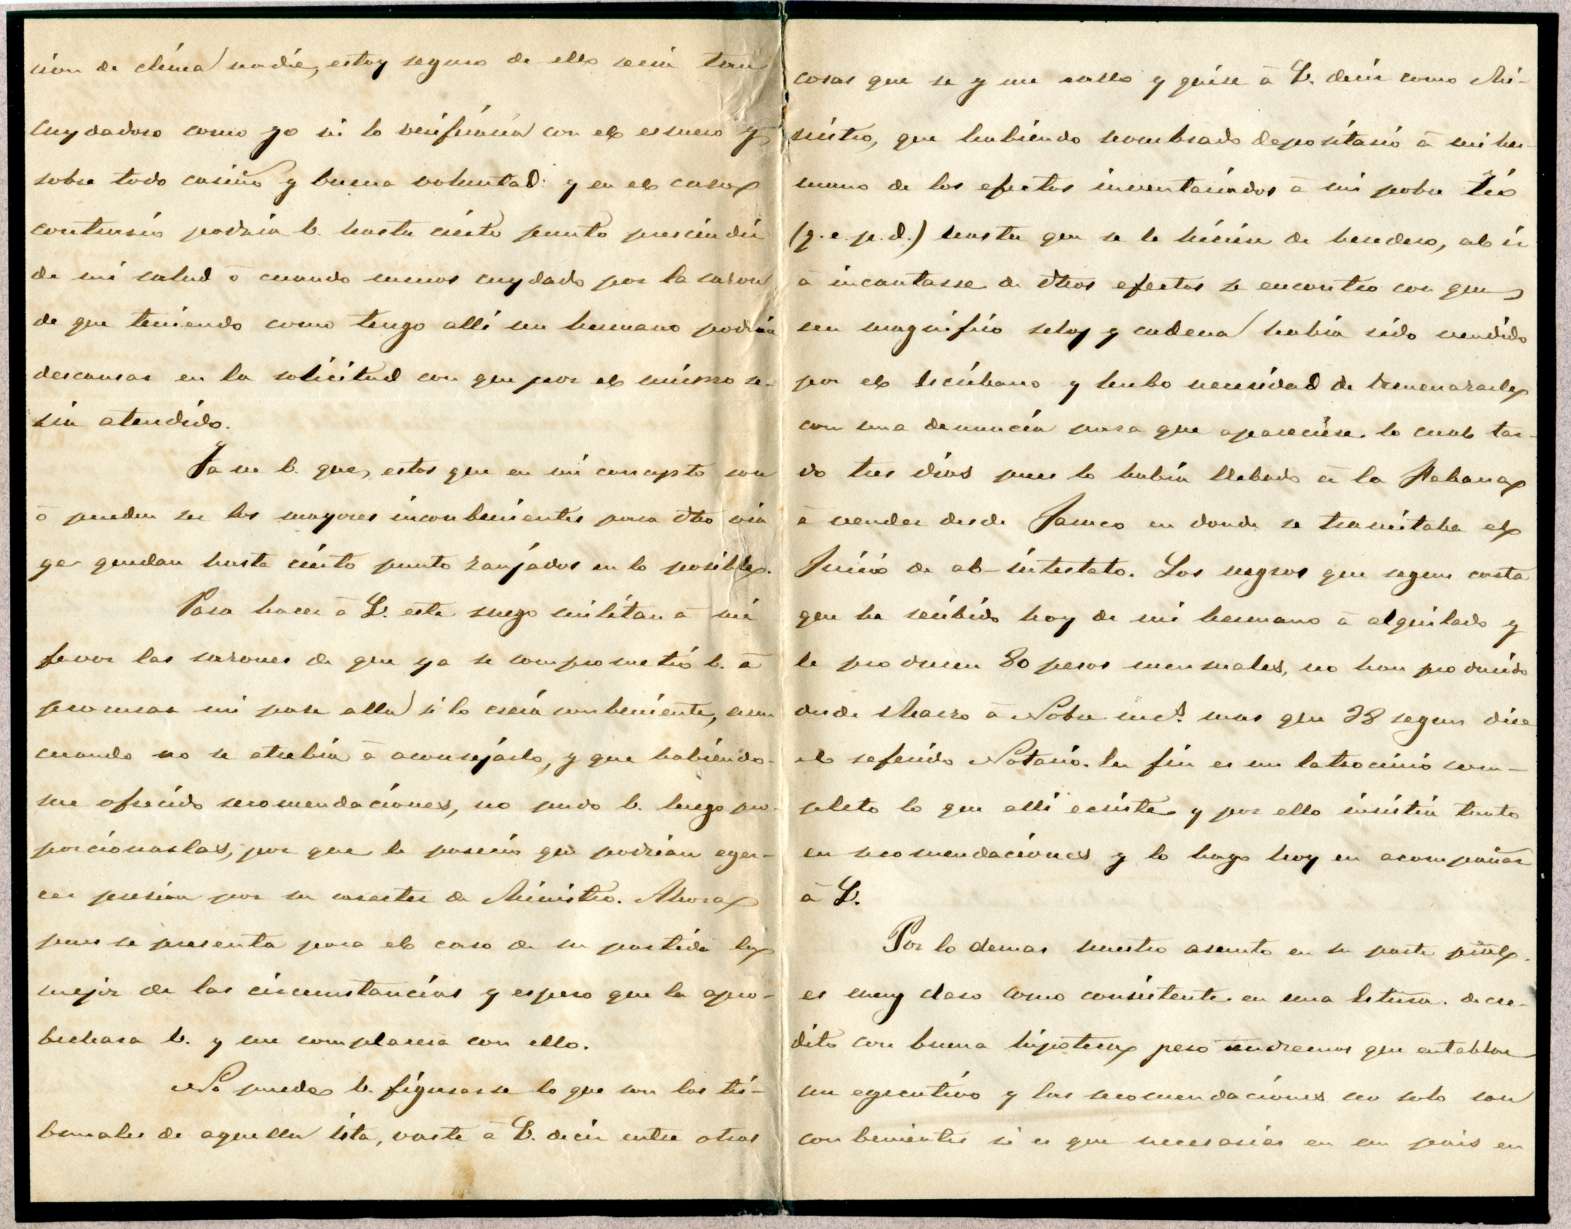 cion de clima nadie, estoy seguro de ello seria tan
cuydadoso como yo ni lo verificaria con el esmero y
sobre todo cariño y buena voluntad: y en el caso
contrario podria V. hasta cierto punto prescindir
de mi salud ó cuando menos cuydado por la razon
de que teniendo como tengo alli un hermano podria
descansar en la solicitud con que por el mismo se-
ria atendido.
Ya ve V. que, estos que en mi concepto son
ó pueden ser los mayores inconbenientes para dho via
ge quedan hasta cierto punto zanjados en lo posible.
Para hacer á V. este ruego militan á mi
favor las razones de que ya se comprometió V. á
procurar mi pase alla si lo creia conbeniente, aun
cuando no se atrebia á aconsejarlo, y que habiendo-
me ofrecido recomendaciones, no pudo V. luego pro-
porcionarlas, por que le parecio qe podrian ejer-
cer presion por su caracter de Ministro. Ahora
pues se presenta para el caso de su partida la
mejor de las circumstancias y espero que la apro-
bechara V. y me complacera con ello.
No puede V. figurarse lo que son los tri-
bunales de aquella isla, vaste á V. decir entre otras
cosas que se y me callo y quise á V. decir como Mi-
nistro, que habiendo nombrado depositario á mi her-
mano de los efectos inventariados á mi pobre tio
(q. e. p. d.) hasta que se le hiciera de heredero, al ir
á incautarse de dhos efectos se encontro con que
un magnifico reloj y cadena habia sido vendido
por el Escribano y hubo necesidad de amenazarle
con una denuncia para que apareciese. lo cual tar-
do tres dias pues lo habia llebado á la Habana
á vender desde Jaruco en donde se tramitaba el
Juicio de ab-intestato. Los negros que segun carta
que he recibido hoy de mi hermano á alquilado y
le producen 80 pesos mensuales, no han producido
desde Marzo á Nobre incl. mas que 28 segun dice
el referido Notario. En fin es un latrocinio com-
pleto lo que alli ecsiste y por ello insistia tanto
en recomendaciones y lo hago hoy en acompañar
á V.
Por lo demas nuestro asunto en su parte pral.
es muy claro como consistente en una letura. de cre-
dito con buena hipoteca pero tendremos que entablar
un egecutivo y las recomendaciones no solo son
conbenientes si es que necesarias en un pais en